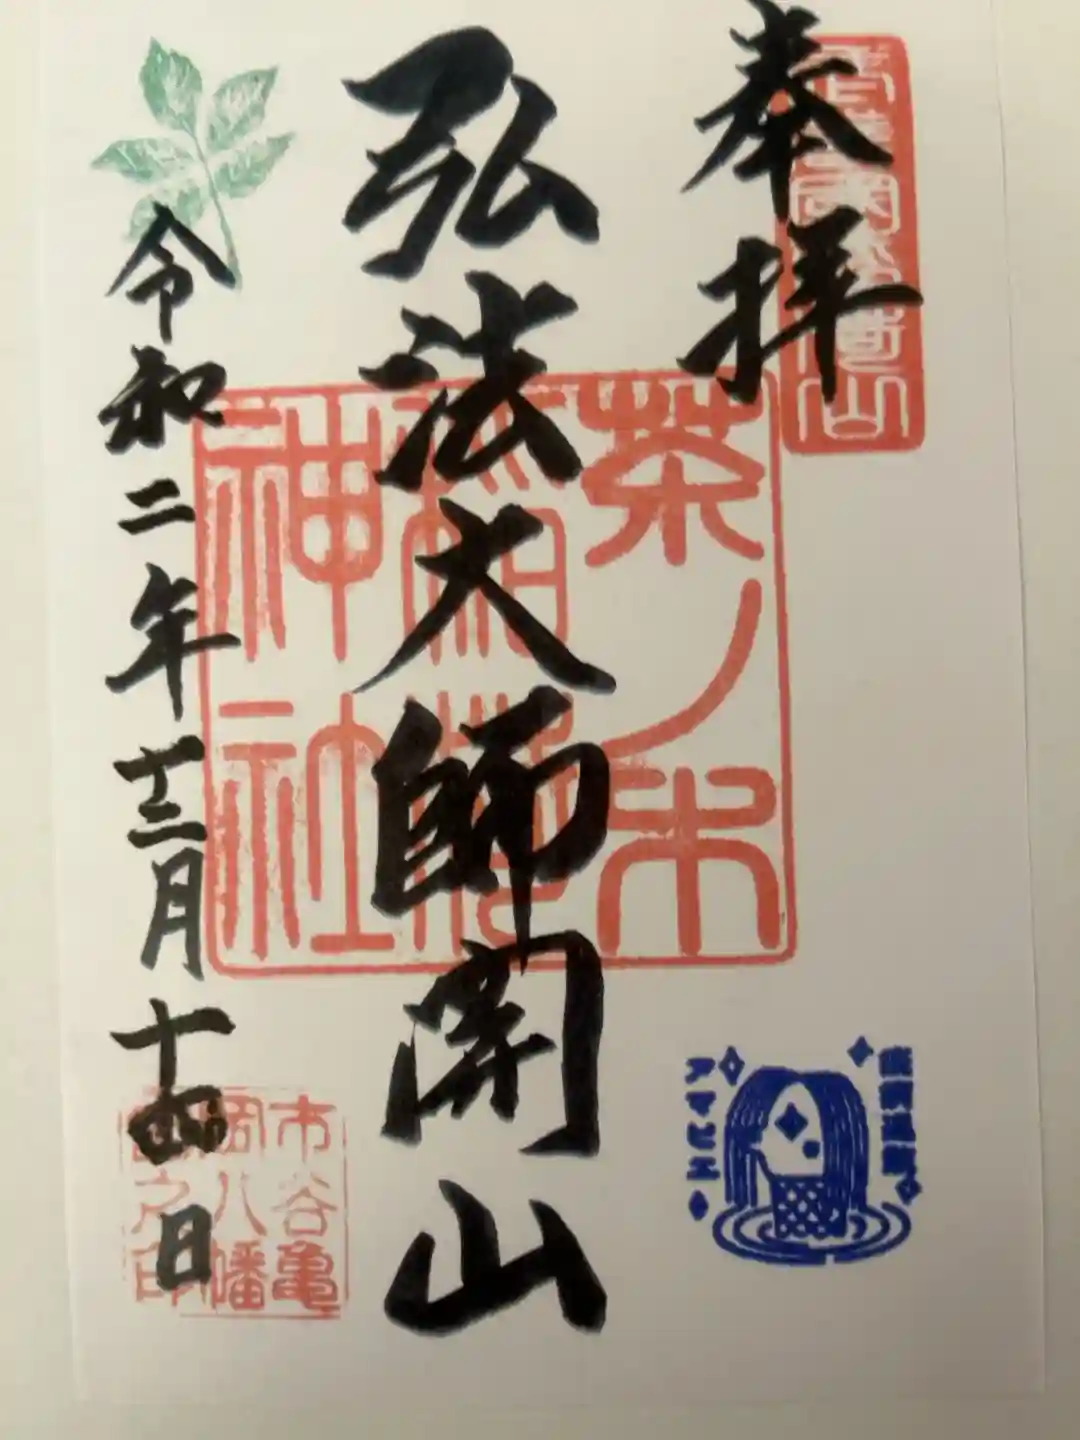 奉拝
弘法大師開山
令和二年十二月十四日
茶ノ木
稲荷
神社
疫病退散
アマビエ
市谷亀
岡八幡
宮之印